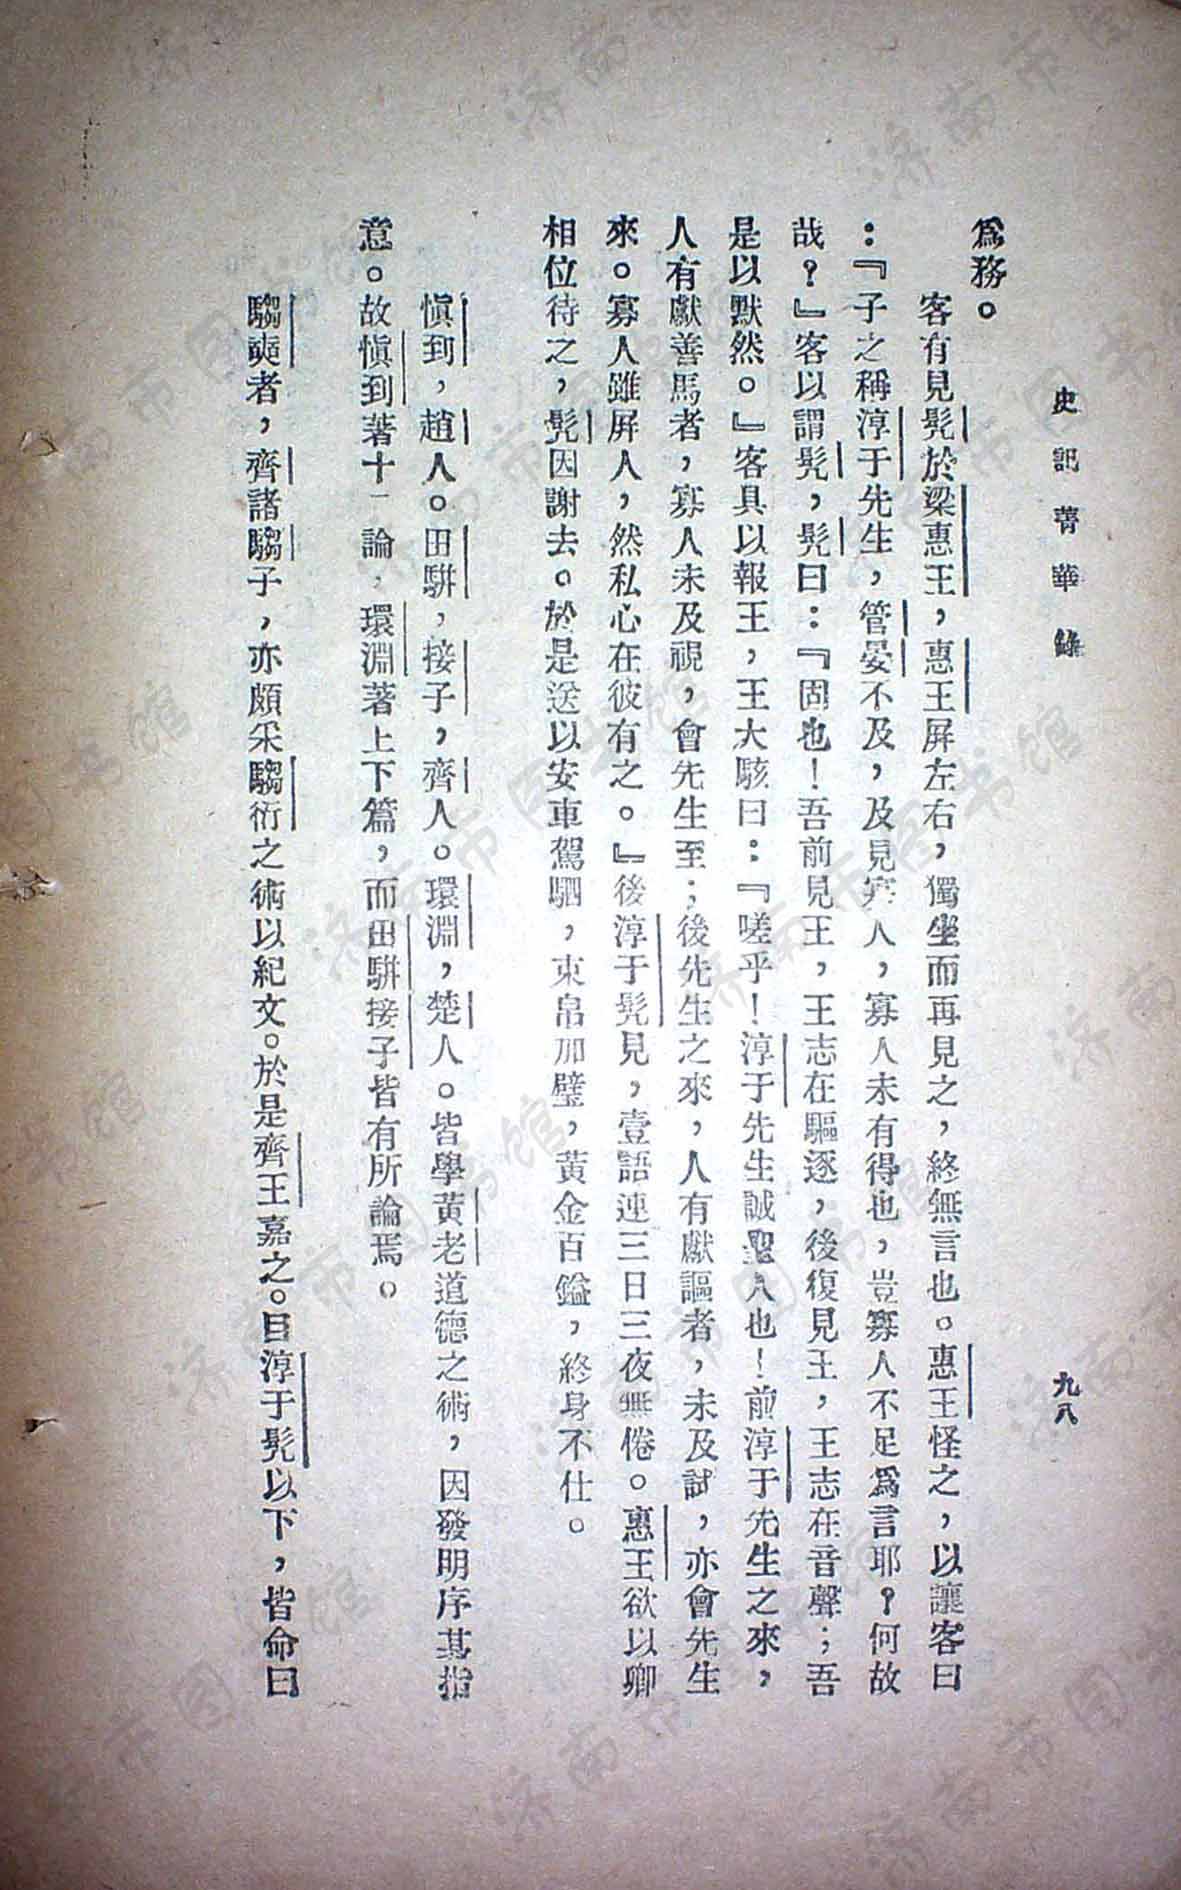 史記菁華錄
九八
爲務。
客有見髡於梁惠王，惠王屏左右，獨坐而再見之，終無言也。惠王怪之，以讓客曰
：『子之稱淳于先生，管晏不及，及見寡人，寡人未有得也，豈寡人不足爲言耶？何故
哉？』客以謂髡，髡曰：『固也！吾前見王，王志在驅逐，後復見王，王志在音聲；吾
是以默然。』客具以報王，王大駭曰：『嗟乎！淳于先生誠聖人也！前淳于先生之來，
人有獻善馬者，寡人未及視，會先生至；後先生之來，人有獻謳者，未及試，亦會先生
來。寡人雖屏人，然私心在彼有之。』後淳于髡見，壹語連三日三夜無倦。惠王欲以卿
相位待之，髡因謝去。於是送以安車駕駟，束帛加璧，黃金百鎰，終身不仕。
愼到，趙人。田騈，接子，齊人。環淵，楚人。皆學黃老道德之術，因發明序其指
意。故愼到著十一論，環淵著上下篇，而田騈接子皆有所論焉。
騶奭者，齊諸騶子，亦頗采騶衍之術以紀文。於是齊王嘉之。自淳于髡以下，皆命曰
济南市图书馆